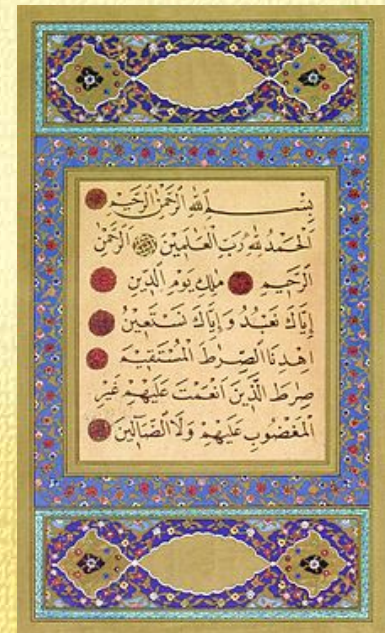 بِسْمِ اللهِ الرَّحْمٰنِ الرَّحِيمِ
اَلْحَمْدُ لِلّٰهِ رَبِّ الْعَالَمِينَ الرَّحْمٰنِ
الرَّحِيمِ مٰلِكِ يَوْمِ الدِّينِ
اِيَّاكَ نَعْبُدُ وَاِيَّاكَ نَسْتَعِينُ
اِهْدِنَا الصِّرٰطَ الْمُسْتَقِيمَ
صِرٰطَ الَّذِينَ اَنْعَمْتَ عَلَيْهِمْ غَيْرِ
الْمَغْضُوبِ عَلَيْهِمْ وَلَا الضَّٓالِّينَ